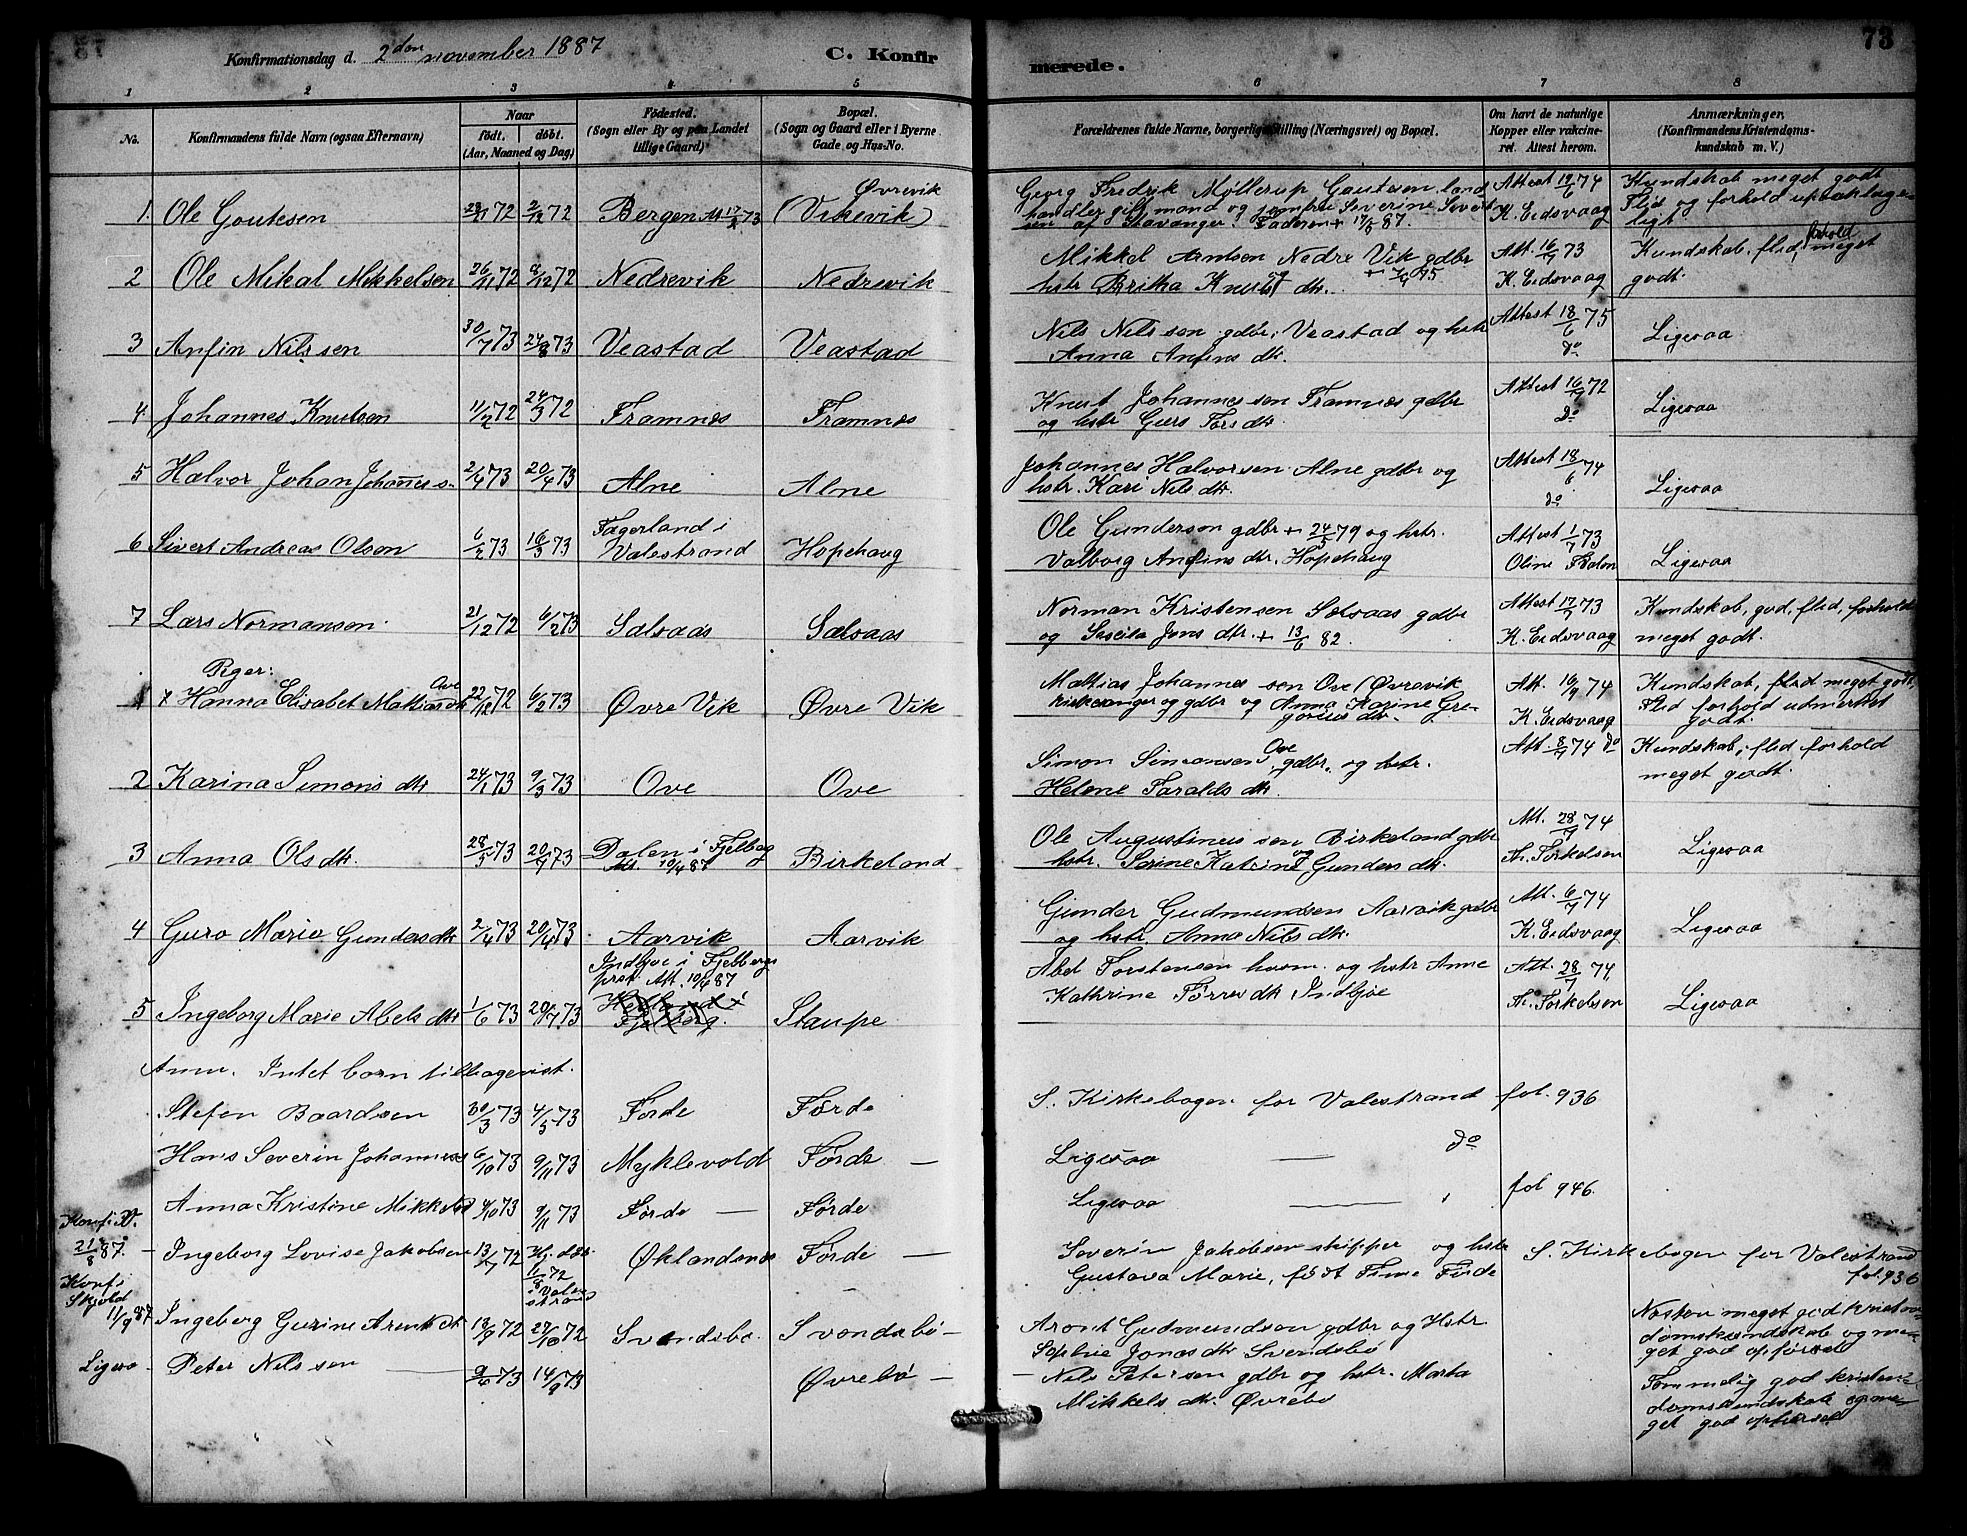 Konfirmationsdag d. 2den november 1887
C. Konfirmerede.
73
1 2 3 4 5 6 7 8
No.
Konfirmandens fulde Navn (ogsaa Efternavn)
Naar
født. døbt.
(Aar, Maaned og Dag)
Fødested.
(Sogn eller By og paa Landet
tillige Gaard)
Bopæl.
(Sogn og Gaard eller i Byerne
Gade og Hus-No.
Forældrenes fulde Navne, borgerlige Stilling (Næringsvei) og Bopæl.
Om havt de naturlige
Kopper eller vakcine-
ret. Attest herom.
Anmærkninger.
(Konfirmandens Kristendoms-
kundskab m. V.)
1. Ole Gautesen 28/11 72 2/12 72 Bergen Øvrevik (Vikevik)
Georg Fredrik Møllerup Gautesen land
handler gift mand og jomfru Severine Sivert
sen af Stavanger. Faderen + 17/8 87.
Attest 19/6 74
K. Eidsvaag
Kundskab meget godt
Flid og forhold upaaklage-
ligt
2 Ole Mikal Mikkelsen 26/11 72 8/12 72 Nedrevik Nedrevik
Mikkel Arntsen Nedre Vik gdbr
hstr Britha Knuts dtr.
Att. 16/9 73
K. Eidsvaag
Kundskab, flid, forhold meget
godt.
3 Anfin Nilssen 30/7 73 24/8 73 Veastad Veastad
Nils Nilssen gdbr. Veastad og hstr
Anna Anfins dtr.
Attest 18/6 75
do
Ligesaa
4. Johannes Knutsen 11/2 72 24/3 72 Framnæs Framnæs
Knut Johannessen Framnæs gdbr
og hstr Guro Tors dtr.
Attest 16/9 72
do
Ligesaa
5 Halvor Johan Johanness. 2/4 73 20/4 73 Alne Alne
Johannes Halvorsen Alne gdbr og
hstr. Kari Nils dtr.
Attest 18/6 74
do
Ligesaa
6 Sivert Andreas Olson 6/2 73 16/3 73 Fagerland i
Valestrand Hopehaug
Ole Gunderson gdbr + 24/5 79 og hstr.
Valborg Anfins dtr. Hopehaug
Attest 1/7 73
Oline
Ligesaa
7 Lars Normanson. 21/12 72 6/2 73 Salsaas Salsaas
Norman Kristensen Salsaas gdbr
og Jens dtr. + 13/6 82.
Attest 17/7 73
K. Eidsvaag
Kundskab, god, flid, forhold
meget godt.
Piger:
1 Hanna Elisabet Mathiasdtr Ove 22/12 72 6/2 73 Øvre Vik Øvre Vik
Mathias Johannes sen Ove (Øvrevik
kirkesanger og gdbr og Anna Karine Gre-
gorius dtr.
Att. 16/9 74
K. Eidsvaag
Kundskab, flid meget godt,
Flid forhold udmerket
godt.
2 Karina Simons dtr 24/1 73 9/3 73 Ove Ove
Simon Simonsen Ove gdbr. og hstr.
Helene Taralds dtr.
Att 8/9 74 do
Kundskab, flid forhold
meget godt.
3 Anna Ols dtr. 28/5 73 20/7 73 Dalen i Fjelberg
Att. 10/4 87 Birkeland
Ole Augustinus sen Birkeland gdbr
hstr. Serine Katrine Gunders dtr.
Att. 28/7 74
Th. Torkelsen
Ligesaa
4 Guro Marie Gunders dtr 2/4 73 20/4 73 Aarvik Aarvik
Gunder Gudmundsen Aarvik gdbr
og hstr. Anna Nils dtr.
Att. 6/7 74
K. Eidsvaag
Ligesaa
5 Ingeborg Marie Abels dtr 1/6 73 20/7 73 Indbjoe i Fjelbergs
prst. Att. 10/4 87
Fjelberg. Staupe
Abel Torstensen husm. og hstr Anne
Kathrine Tørres dtr Indbjoe
Att. 28/7 74
Th. Torkelsen
Ligesaa
Anm. Intet barn tilbagevist.
Stefen Baardsen 30/3 73 4/5 73 Førde Førde
S. Kirkebogen for Valestrand fol. 936
Hans Severin Johannesen 6/10 73 9/11 73 Myklevold Førde —
Ligesaa — do
Anna Kristine Mikkelsd 4/10 73 9/11 73 Førde — Førde
Ligesaa — fol 946.
Konf. i V.
21/8 87. - Ingeborg Lovise Jakobsen 13/7 72 Hj. døbt
11/8 72
i Vale-
strand Øklandsnes Førde —
Severin Jakobsen skipper og hstr
Gustava Marie, født
S. Kirkebogen for Valestrand
fol. 936
Konf. i
Skjold
11/9 87 Ingeborg Gurine Arentsdtr 13/9 72 27/10 72 Svendsbø. Svendsbø -
Arent Gudmundsen gdbr og Hstr
Sophie Jonas dtr Svendsbø
Næsten meget god kristen-
domskundskab og me-
get god opførsel
Ligesaa - Peter Nilssen 9/6 73 14/9 73 Øvrebø -
- Nils Petersen gdbr og hstr. Marta
Mikkels dtr. Øvrebø
Temmelig god kristen-
domskundskab og me-
get god opførsel